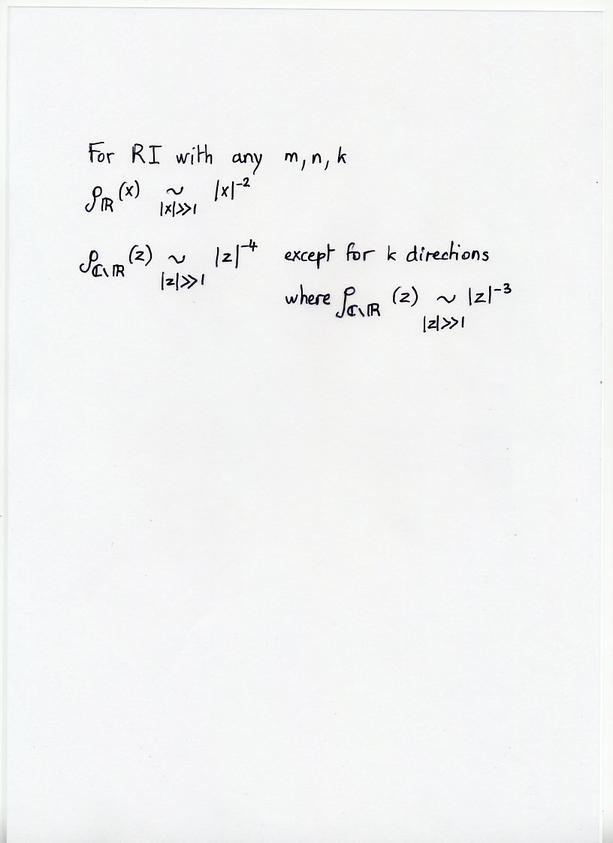 For RI with any m, n, k
ρ_ℝ(x) ~ |x|⁻²
|x|>>1
ρ_ℂ\ℝ(z) ~ |z|⁻⁴ except for k directions
|z|>>1
where ρ_ℂ\ℝ(z) ~ |z|⁻³
|z|>>1